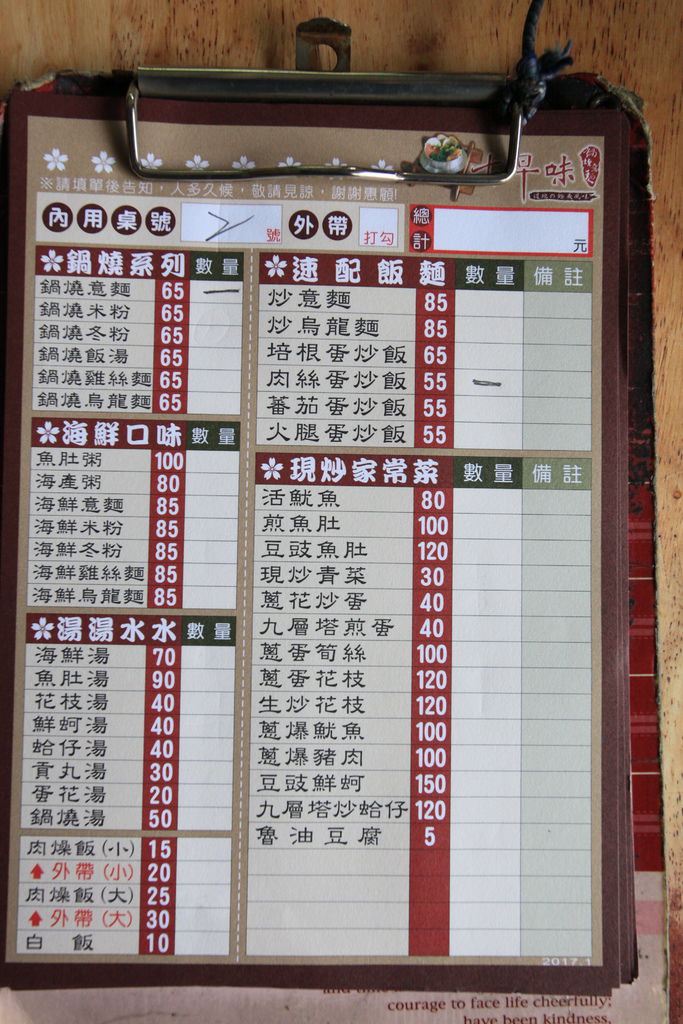 早味
※請填單後告知，人多久候，敬請見諒，謝謝惠顧!
內用桌號 2 號 外帶 打勾 總計 元
鍋燒系列 數量
鍋燒意麵 65 一
鍋燒米粉 65
鍋燒冬粉 65
鍋燒飯湯 65
鍋燒雞絲麵 65
鍋燒烏龍麵 65
海鮮口味 數量
魚肚粥 100
海產粥 80
海鮮意麵 85
海鮮米粉 85
海鮮冬粉 85
海鮮雞絲麵 85
海鮮烏龍麵 85
湯湯水水 數量
海鮮湯 70
魚肚湯 90
花枝湯 40
鮮蚵湯 40
蛤仔湯 40
貢丸湯 30
蛋花湯 20
鍋燒湯 50
肉燥飯(小) 15
外帶(小) 20
肉燥飯(大) 25
外帶(大) 30
白飯 10
速配飯麵 數量 備註
炒意麵 85
炒烏龍麵 85
培根蛋炒飯 65
肉絲蛋炒飯 55 一
蕃茄蛋炒飯 55
火腿蛋炒飯 55
現炒家常菜 數量 備註
活魷魚 80
煎魚肚 100
豆豉魚肚 120
現炒青菜 30
蔥花炒蛋 40
九層塔煎蛋 40
蔥蛋筍絲 100
蔥蛋花枝 120
生炒花枝 120
蔥爆魷魚 100
蔥爆豬肉 100
豆豉鮮蚵 150
九層塔炒蛤仔 120
魯油豆腐 5
2017.1
courage to face life cheerfully;
have been kindness,